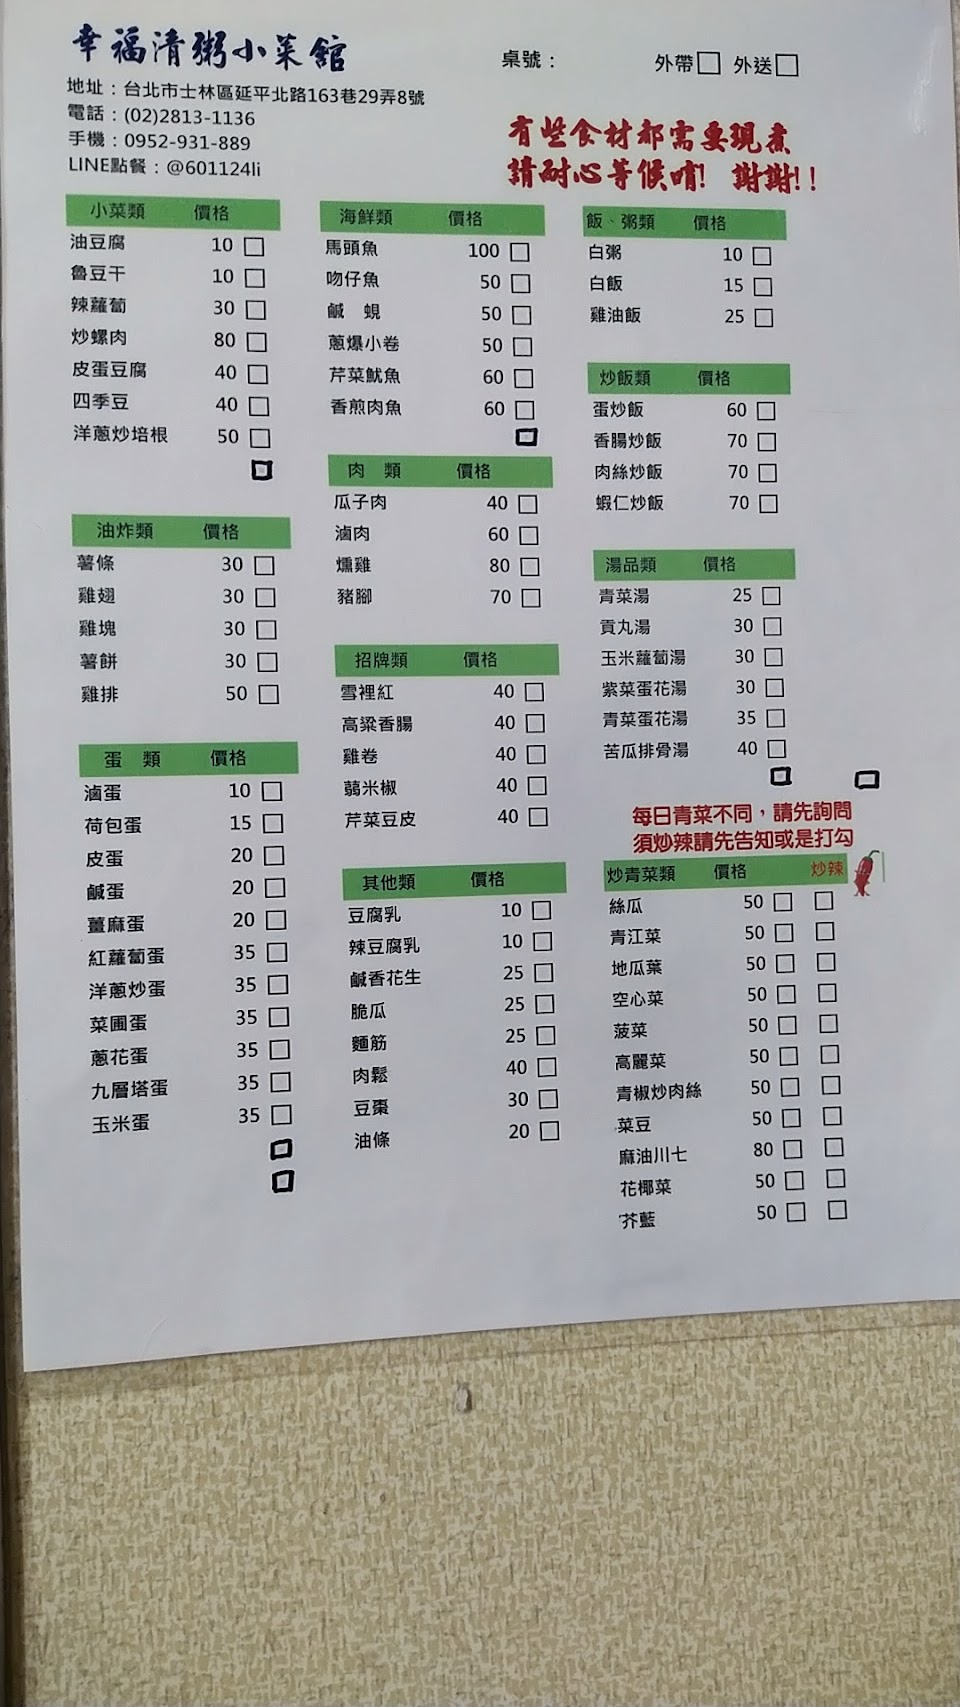 幸福清粥小菜館
桌號：
外帶□ 外送□
地址：台北市士林區延平北路163巷29弄8號
電話：(02)2813-1136
手機：0952-931-889
LINE點餐：@601124li
有些食材都需要現煮
請耐心等候唷! 謝謝!!
小菜類 價格
油豆腐 10 □
魯豆干 10 □
辣蘿蔔 30 □
炒螺肉 80 □
皮蛋豆腐 40 □
四季豆 40 □
洋蔥炒培根 50 □
油炸類 價格
薯條 30 □
雞翅 30 □
雞塊 30 □
薯餅 30 □
雞排 50 □
蛋 類 價格
滷蛋 10 □
荷包蛋 15 □
皮蛋 20 □
鹹蛋 20 □
薑麻蛋 20 □
紅蘿蔔蛋 35 □
洋蔥炒蛋 35 □
菜圃蛋 35 □
蔥花蛋 35 □
九層塔蛋 35 □
玉米蛋 35 □
海鮮類 價格
馬頭魚 100 □
吻仔魚 50 □
鹹 蜆 50 □
蔥爆小卷 50 □
芹菜魷魚 60 □
香煎肉魚 60 □
肉 類 價格
瓜子肉 40 □
滷肉 60 □
燻雞 80 □
豬腳 70 □
招牌類 價格
雪裡紅 40 □
高粱香腸 40 □
雞卷 40 □
蒻米椒 40 □
芹菜豆皮 40 □
其他類 價格
豆腐乳 10 □
辣豆腐乳 10 □
鹹香花生 25 □
脆瓜 25 □
麵筋 25 □
肉鬆 40 □
豆棗 30 □
油條 20 □
飯、粥類 價格
白粥 10 □
白飯 15 □
雞油飯 25 □
炒飯類 價格
蛋炒飯 60 □
香腸炒飯 70 □
肉絲炒飯 70 □
蝦仁炒飯 70 □
湯品類 價格
青菜湯 25 □
貢丸湯 30 □
玉米蘿蔔湯 30 □
紫菜蛋花湯 30 □
青菜蛋花湯 35 □
苦瓜排骨湯 40 □
每日青菜不同，請先詢問
須炒辣請先告知或是打勾
炒青菜類 價格 炒辣
絲瓜 50 □ □
青江菜 50 □ □
地瓜葉 50 □ □
空心菜 50 □ □
菠菜 50 □ □
高麗菜 50 □ □
青椒炒肉絲 50 □ □
菜豆 50 □ □
麻油川七 80 □ □
花椰菜 50 □ □
芥藍 50 □ □